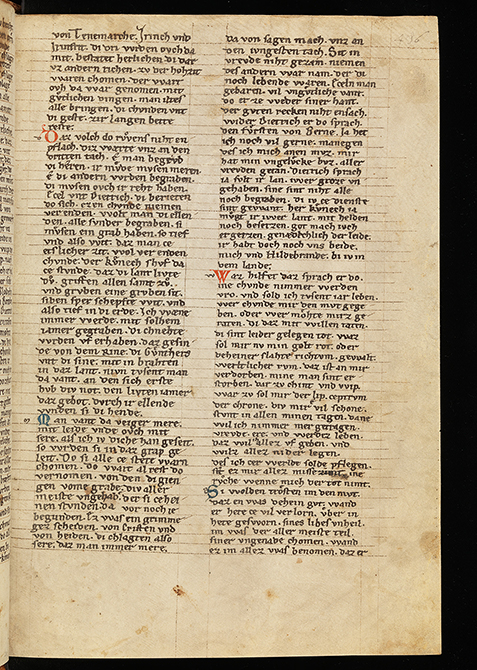 von Tenemarche. Irinch vnd
Irnfrit. di dri vvrden ovch da
mit. bestatet herlichen di dar
vz andern richen. zv der hohzit
vvaren chomen. der vvart
ovh da vvar genomen. mit
gvtlichen dingen. man
alle bringen. di chvnden vvaren
di geste. zir langen bette
reste.
Daz volch do rvvens niht en
pflach. diz vvarte vnz an den
dritten tach. e man begrvb
di heren. ir mvde mvsen meren
e di andern vvrden begraben.
di mvsen ovch ir reht haben.
Ecel vnt Dietrich. di berieten
do sich. ez en chvnde niemen
verenden. vvolt man di ellen
den. alle svnder begraben. si
mvsen ein grab haben. so tief
vnd also vvit. daz man ce
etslicher zit. vvol ver enden
chvnde. der kvnech schvf da
ce stvnde. daz di lant livte
dv. griffen allen samt zv.
vnd grvben eine grvben sit.
siben sper schephte vvit. vnd
also tief in di erde. Ich vvæne
immer vverde. mit solhem
iamer gegraben. di chnehte
vvrden vf erhaben. daz gesin
de von dem Rine. di Gvnthers
vnt di sine. mit in brahten
in daz lant. nivn tvsent man
da vant. an den sich erste
hvb div not. den livten iamer
daz gebot. dvrch ir ellende
vvnden si di hende.
Man vant da veiger mere.
mit leide vnde ovch mit
sere. als ich iv diche han geseit.
so vvrden si in daz grap ge
leit. Do si alle ce stete vvarn
chomen. do vvart al rest do
vernomen. von den. di gien
gen vome grabe. div aller
meiste vngehab. der si cehei
nen stvnden da vor noch ie
begvnden. Ez vvas ein grimme
gez scheiden. von Cristen vnd
von heiden. di chlagten also
sere. daz man immer mere.
da von sagen mach. vnz an
den ivngesten tach. Sit in
vrevde niht gezam. niemen
des andern vvar nam. der di
noch lebende vvaren. Eceln man
gebaren. vil vngvtliche vant.
do er ze vveder siner hant.
der gvten recken niht ensach.
wider Dietrich er do sprach.
den fvrsten von Berne. Ja het
ich noch vil gerne. manegen
des ich mich anen mvz. mir
hat min vngelvcke bvz. aller
vrevden getan. Dietrich sprach
la stet ir lan. ivver groze vn
gehaben. sine sint niht alle
noch begraben. di iv ce dienste
sint gevvant. her kvnech ia
mvgt ir ivver lant. mit helden
noch besetzen. got mach ivch
ergetzen. genædechlich der leide.
ir habt doch noch vns beide.
mich vnd Hildebrande. bi iv in
dem lande.
Waz hilffet daz sprach er do.
ine chvnde nimmer vverden
vro. vnd sold ich tvsent iar leben.
vver chvnde mir den mvt gegeben.
oder vver mohte mirz ge
raten. di daz mit vvillen taten.
di sint leider gelegen tot. vvaz
sol mir nv min golt rot. oder
deheiner slahte richtvm. gevvalt.
vverltlicher rvm. daz ist an mir
verdorben. mine man sint er
storben. dar zv chint vnd vvip.
vvar zv sol mir der lip. ceptrvm
der chrone. div mir vil schone.
stvnt in allen minen tagen. dane
vvil ich nimmer mer getragen.
vrevde. ere. vnd vverdez leben.
daz vvil allez vf geben. vnd
vvilz allez nider legen.
des ich cer vverlde solde pflegen.
sit ez mir allez ine
rvche vvenne mich der tot nimt.
Si vvolden trosten im den mvt.
daz en vvas dehein gvt. vvand
er hete ce vil verlorn. vber in
hete gesvvorn. sines libes vnheil.
im vvas der aller meiste teil.
siner vngenade chomen. vvand
ez im allez vvas benomen. daz er